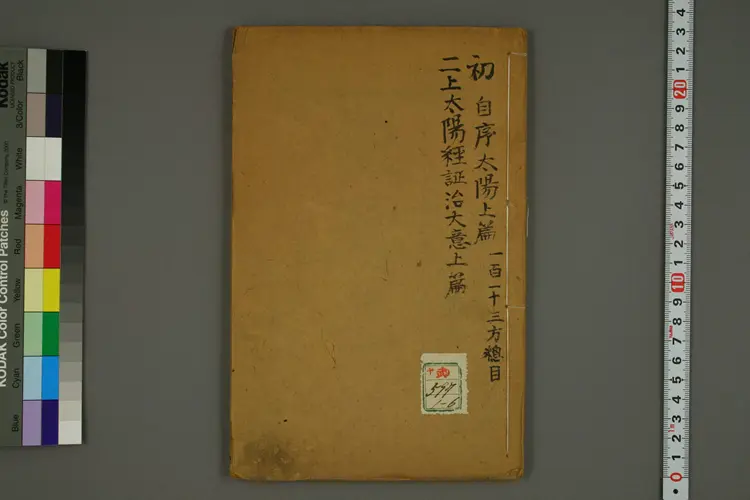 初 自序 太陽上篇 一百一十三方總目
二上太陽經証治大意上篇
577
-6
Kodak
KODAK Color Control Patches
Black
3/Color
White
Magenta
Red
Yellow
Green
Cyan
Blue
4
3
2
1
20
9
8
7
6
5
4
3
2
1
10
9
8
7
6
5
4
3
2
1
0